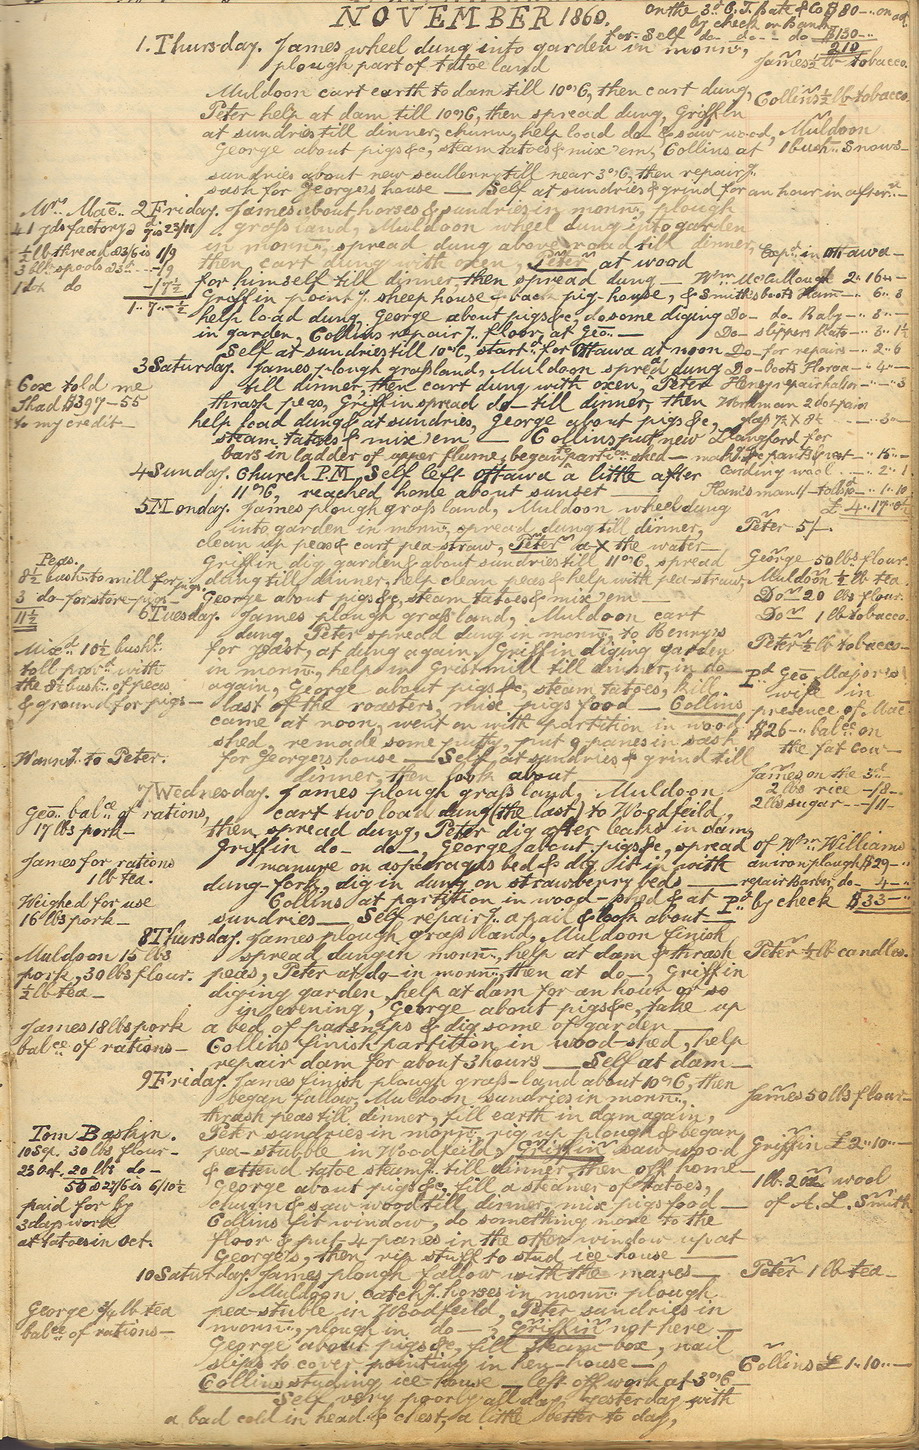 NOVEMBER 1860.
on the 3rd C. T. Bate & Co $80 -- on acct
by check on Bank
for Self do - do - - do $130 --
210
1. Thursday. James wheel dung into garden in mornn,
James ½ lb tobacco.
plough part of tatoe land
Muldoon cart earth to dam till 10 o'C, then cart dung,
Collins ½ lb tobacco.
Peter help at dam till 10 o'C, then spread dung, Griffin
at sundries till dinner, churn, help load do & saw wood,
Muldoon
George about pigs &c, steam tatoes & mix 'em, Collins at
1 bush. Snows -
sundries about new scullery till near 3 o'C, then repairg.
sash for George's house — Self at sundries & grind for an hour in aftern.
Mrs Mac..
2 Friday. James about horses & sundries in mornn, plough
41 yds factory
grass land, Muldoon wheel dung into garden
½ lb thread @ 3/6 is 1/9
in mornn. spread dung above road till dinner,
Expd. in Ottawa -
3 lb spools
then cart dung with oxen, Peter at wood
1 do do - /7½
for himself till dinner, then spread dung —
Wm McCullough 2 " 16 " -
1 " 7 " - ½
Griffin point g. sheep house & back pig-house, &
Smiths boots Ham - " 6 " 3
help load dung, George about pigs &c, do some diging
Do - do. Baby - " 3 " -
in garden, Collins repair g. floor, at Geo. —
Do - slippers Kate - " 3 " 1½
Self at sundries till 10 o'C, startd for Ottawa at noon
Do - for repairs - " 2 " 6
3 Saturday. James plough grass land, Muldoon spread dung
Do - boots Horoa - " 4 " -
Cox told me
till dinner, then cart dung with oxen, Peter
Henrys repair halter - " - " 3
I had $397-55
thrash peas, Griffin spread do - till dinner, then
Workman 2 dot pain
to my credit -
help load dung & at sundries, George about pigs &c,
glass 7½ X 8½ - " 3 " -
steam tatoes & mix 'em — Collins put new
Langford for
bars in ladder of upper flume, began partion shed -
makg. pants & vest - " 15 " -
4 Sunday. Church P.M. Self left Ottawa a little after
Carding wool - " 2 " 1
11 o'C, reached home about sunset
Hams man 11 - tatoes - " 1 " 10
5 Monday. James plough grass land, Muldoon wheel dung
£ 4 " 17 " 0½
into garden in mornn, spread dung till dinner,
Peter 5/-
clean up peas & cart pea-straw, Peter a X the water —
Peas.
Griffin dig garden & about sundries till 11 o'C, spread
George 50 lbs flour.
8½ bush. to mill for pigs.
dung till dinner, help clean peas & help with pea-straw,
Muldoon ½ lb tea.
3 do - for store-pigs -
George about pigs &c, steam tatoes & mix 'em —
Do. 20 lbs flour.
11½
6 Tuesday. James plough grass land, Muldoon cart
Do. 1 lb tobacco.
dung, Peter spread dung in mornn, to Henry's
Mixd 10½ bush.
for yeast, at dung again, Griffin diging garden
Peter ½ lb tobacco -
toll provr. with
in mornn, help in Gristmill till dinner, in do —
the 8½ bush. of peas
again, George about pigs &c, steam tatoes, kill
Pd Geo Major's
& ground for pigs -
last of the roasters, mix pigs food — Collins
wife in
came at noon, went on with partition in wood
presence of Mac
shed, remade some putty, put 9 panes in sash
$26 -- balce on
Warnd to Peter.
for George's house — Self at sundries & grind till
the fat Cow -
dinner, then look about —
James on the 3rd
7 Wednesday. James plough grass land, Muldoon
2 lbs rice - /8 -
Geo. balce of rations,
cart two load dung (the last) to Woodfeild,
2 lbs sugar - - /11 -
17 lbs pork -
then spread dung, Peter dig after leaks in dam,
Griffin do - do -, George about pigs &c, spread
of Wm Williams
James for rations
manure on asparagus bed & dig it in with
an iron plough $29 - "
1 lb tea.
dung-fork, dig in dung on strawberry beds —
repair Barber do - 4 - "
Weighed for use
Collins at partition in wood-shed & at
Pd by check $33 - "
16 lbs pork -
sundries — Self repair g. a pail & look about —
8 Thursday. James plough grass land, Muldoon finish
Muldoon 15 lbs
spread dung in mornn, help at dam & thrash
Peter ½ lb candles.
pork, 30 lbs flour.
peas, Peter at do - in mornn, then at do —, Griffin
½ lb tea -
diging garden, help at dam for an hour or so
in evening, George about pigs &c, take up
James 18 lbs pork
a bed of parsnips & dig some of garden
balce of rations -
Collins finish partition in wood-shed, help
repair dam for about 3 hours — Self at dam —
9 Friday. James finish plough grass-land about 10 o'C, then
began fallow, Muldoon sundries in mornn,
James 50 lbs flour -
thrash peas till dinner, fill earth in dam again,
Tom Baskin.
Peter sundries in mornn, rig up plough & began
10 Sep. 30 lbs flour -
pea-stubble in Woodfeild, Griffin saw wood
Griffin £2 " 10 " -
23 Oct. 20 lbs do -
& attend tatoe steamg. till dinner, then off home —
50 @ 27/6 is 6/10½
George about pigs &c, fill a steamer of tatoes,
1 lb. 2 oz wool
paid for by
churn & saw wood till dinner, mix pigs food —
of A. L. Smith
3 days work
Collins fit window, do something more to the
at tatoes in Oct.
floor & put 4 panes in the other window up at
George's, then rip stuff to stud ice-house —
10 Saturday. James plough fallow with the mares —
Peter 1 lb tea -
Muldoon catch g. horses in mornn plough
George ¾ lb tea
pea-stuble in Woodfeild, Peter sundries in
balce of rations -
mornn, plough in do —, Griffin not here —
George about pigs &c, fill steam-box, nail
slips to cover pointing in hen-house —
Collins £ 1 " 10 " -
Collins studing ice-house — left off work at 3 o'C —
Self very poorly all day, yesterday with
a bad cold in head & chest, a little better to day,